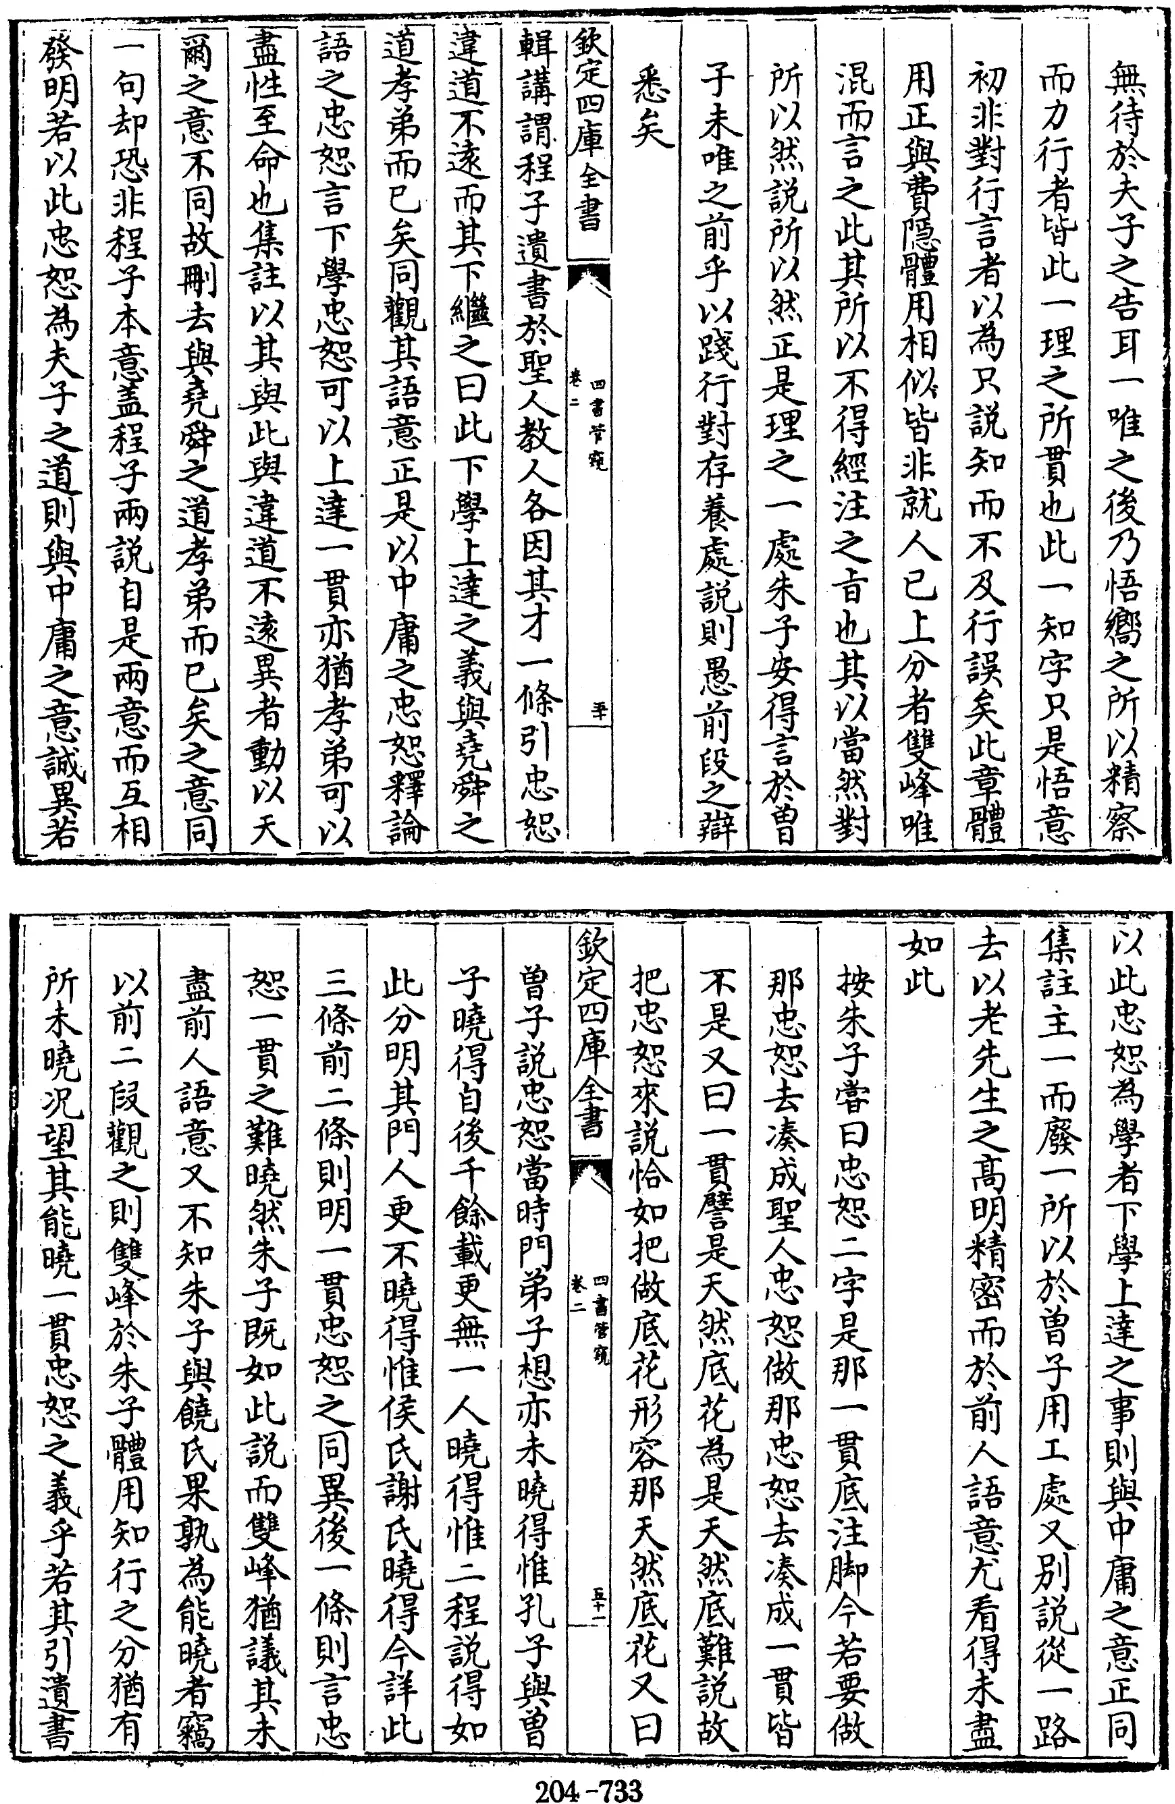 無待於夫子之告耳一唯之後乃悟嚮之所以精察
而力行者皆此一理之所貫也此一知字只是悟意
初非對行言者以為只説知而不及行誤矣此章體
用正與費隱體用相似皆非就人已上分者雙峰唯
混而言之此其所以不得經注之旨也其以當然對
所以然説所以然正是理之一處朱子安得言於曽
子未唯之前乎以踐行對存養處説則愚前段之辯
悉矣
欽定四庫全書
四書管窺
卷二
五十
輯講謂程子遺書於聖人教人各因其才一條引忠恕
違道不遠而其下繼之曰此下學上達之義與堯舜之
道孝弟而已矣同觀其語意正是以中庸之忠恕釋論
語之忠恕言下學忠恕可以上達一貫亦猶孝弟可以
盡性至命也集註以其與此與違道不遠異者動以天
爾之意不同故刪去與堯舜之道孝弟而已矣之意同
一句却恐非程子本意盖程子兩説自是兩意而互相
發明若以此忠恕為夫子之道則與中庸之意誠異若
以此忠恕為學者下學上達之事則與中庸之意正同
集註主一而廢一所以於曽子用工處又別説從一路
去以老先生之髙明精密而於前人語意尤看得未盡
如此
按朱子嘗曰忠恕二字是那一貫底注脚今若要做
那忠恕去凑成聖人忠恕做那忠恕去凑成一貫皆
不是又曰一貫譬是天然底花為是天然底難説故
把忠恕來説恰如把做底花形容那天然底花又曰
欽定四庫全書
四書管窺
卷二
五十一
曽子説忠恕當時門弟子想亦未曉得惟孔子與曽
子曉得自後千餘載更無一人曉得惟二程説得如
此分明其門人更不曉得惟侯氏謝氏曉得今詳此
三條前二條則明一貫忠恕之同異後一條則言忠
恕一貫之難曉然朱子既如此説而雙峰猶議其未
盡前人語意又不知朱子與饒氏果孰為能曉者竊
以前二段觀之則雙峰於朱子體用知行之分猶有
所未曉况望其能曉一貫忠恕之義乎若其引遺書
204-733